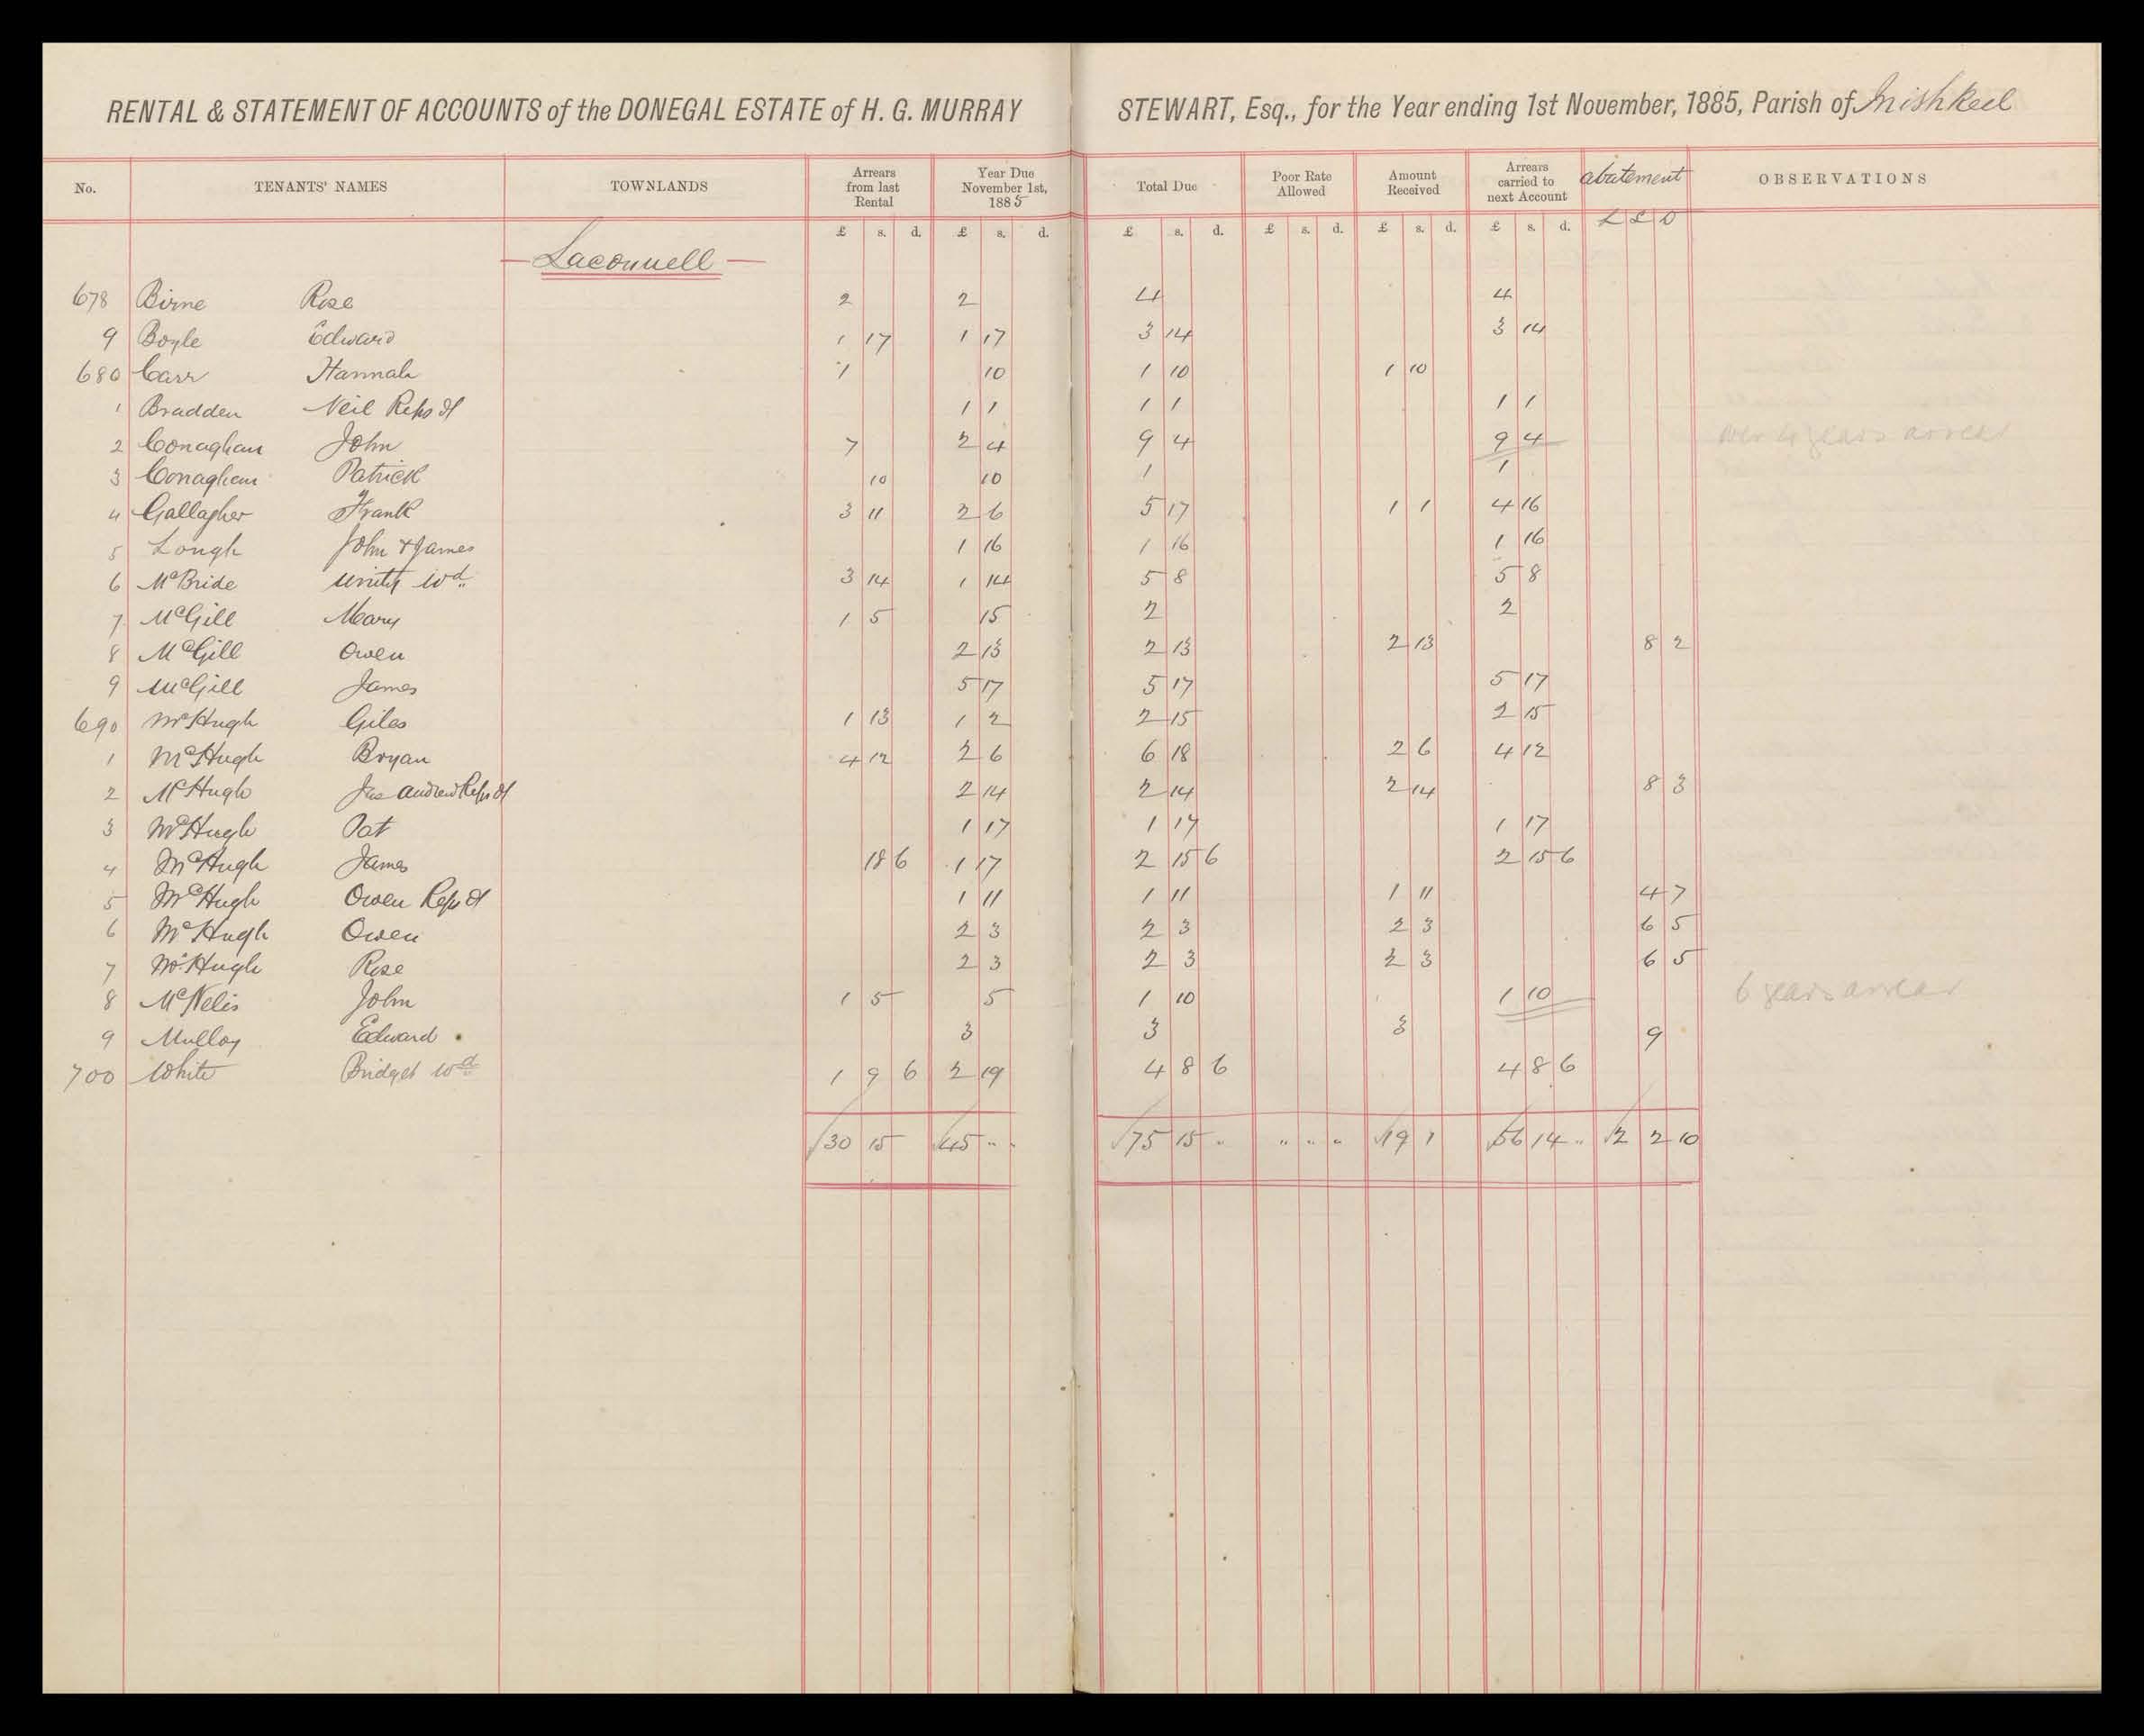 RENTAL & STATEMENT OF ACCOUNTS of the DONEGAL ESTATE of H. G. MURRAY STEWART, Esq., for the Year ending 1st November, 1885, Parish of Inishkeel
No. TENANTS' NAMES TOWNLANDS Arrears from last Rental Year Due November 1st, 1885 Total Due Poor Rate Allowed Amount Received Arrears carried to next Account abatement OBSERVATIONS
£ s. d. £ s. d. £ s. d. £ s. d. £ s. d. £ s. d. £ £ D
— Laconnell —
678 Birne Rose 2 2 4 4
9 Boyle Edward 1 17 1 17 3 14 3 14
680 Carr Hannah 1 10 1 10 1 10
1 Bradden Neil Reps of 1 1 1 1 1 1
2 Conaghan John 7 2 4 9 4 9 4 over 4 years arrear
3 Conaghan Patrick 10 10 1 1
4 Gallagher Frank 3 11 2 6 5 17 1 1 4 16
5 Lough John & James 1 16 1 16 1 16
6 McBride Unity wd 3 14 1 14 5 8 5 8
7 McGill Mary 1 5 15 2 2
8 McGill Owen 2 13 2 13 2 13 8 2
9 McGill James 5 17 5 17 5 17
690 McHugh Giles 1 13 1 2 2 15 2 15
1 McHugh Bryan 4 12 2 6 6 18 2 6 4 12
2 McHugh Jas Andrew Reps of 2 14 2 14 2 14 8 3
3 McHugh Pat 1 17 1 17 1 17
4 McHugh James 18 6 1 17 2 15 6 2 15 6
5 McHugh Owen Reps of 1 11 1 11 1 11 4 7
6 McHugh Owen 2 3 2 3 2 3 6 5
7 McHugh Rose 2 3 2 3 2 3 6 5
8 McNelis John 1 5 5 1 10 1 10 6 years arrear
9 Mulloy Edward 3 3 3 9
700 White Bridget wd 1 9 6 2 19 4 8 6 4 8 6
30 15 45 " " 75 15 " " " " 19 1 56 14 " 2 2 10